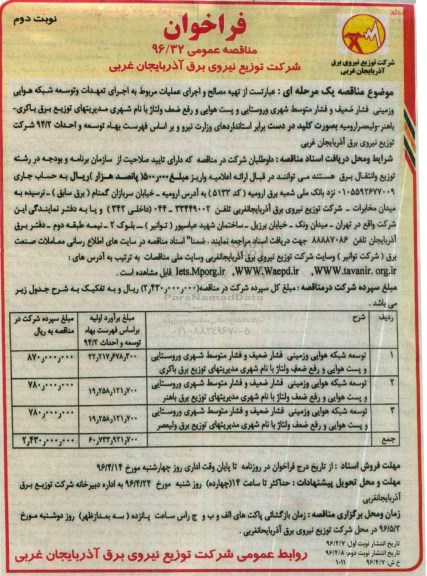 نوبت دوم
فراخوان
مناقصه عمومی ۹۶/۳۲
شرکت توزیع نیروی برق آذربایجان غربی
شرکت توزیع نیروی برق
آذربایجان غربی
موضوع مناقصه یک مرحله ای : عبارتست از تهیه مصالح و اجرای عملیات مربوط به اجرای تعهدات وتوسعه شبکه هوایی
وزمینی فشار ضعیف و فشار متوسط شهری وروستایی و پست هوایی و رفع ضعف ولتاژ با نام شهری مدیریتهای توزیع برق باکری-
باهنر-ولیعصرارومیه بصورت کلید در دست برابر استانداردهای وزارت نیرو و بر اساس فهرست بهاء توسعه و احداث ۹۴/۲ شرکت
توزیع نیروی برق آذربایجان غربی
شرایط ومحل دریافت اسناد مناقصه : داوطلبان شرکت در مناقصه که دارای تایید صلاحیت از سازمان برنامه و بودجه در رشته
توزیع وانتقال برق هستند می توانند در قبال ارائه اعلامیه واریز مبلغ ۵۰۰/۰۰۰( پانصد هزار )ریال به حساب جاری
۰۱۰۵۵۹۲۶۷۷۰۰۹ نزد بانک ملی شعبه برق ارومیه ( کد ۵۱۳۳) به آدرس ارومیه - خیابان سربازان گمنام ( برق سابق ) -نرسیده به
میدان مخابرات - شرکت توزیع نیروی برق آذربایجانغربی تلفن ۳۳۴۴۹۰۰۲-۰۴۴ (داخلی ۳۴۲ ) و یا به دفتر نمایندگی این
شرکت واقع در تهران - میدان ونک - خیابان برزیل - ساختمان شهید عباسپور ( توانیر ) – بلوک ۲ - نیمه طبقه دوم - دفتر برق
آذربایجان تلفن ۸۸۸۸۷۰۸۶ جهت دریافت اسناد مراجعه نمایند . ضمنا" اسناد مناقصه در سایت های اطلاع رسانی معاملات صنعت
برق ( شرکت توانیر ) وسایت شرکت توزیع نیروی برق آذربایجانغربی وسایت ملی مناقصات به ترتیب به آدرس های :
Iets.Mporg.ir ،WWW.Waepd.ir ،WWW.tavanir. org.ir قابل مشاهده است .
مبلغ سپرده شرکت درمناقصه : مبلغ کل سپرده شرکت در مناقصه(۲٫۴۳۰٫۰۰۰٫۰۰۰) ریال و به تفکیک به شرح جدول زیر
می باشد .
ردیف شرح مبلغ برآورد اولیه براساس فهرست بهاء توسعه و احداث ۹۴/۲ مبلغ سپرده شرکت در مناقصه به ریال
۱ توسعه شبکه هوایی وزمینی فشار ضعیف و فشار متوسط شهری وروستایی و پست هوایی و رفع ضعف ولتاژ با نام شهری مدیریتهای توزیع برق باکری ۲۲٫۲۱۷٫۶۷۸٫۳۰۰ ۸۷۰٫۰۰۰٫۰۰۰
۲ توسعه شبکه هوایی وزمینی فشار ضعیف و فشار متوسط شهری وروستایی و پست هوایی و رفع ضعف ولتاژ با نام شهری مدیریتهای توزیع برق باهنر ۱۹٫۲۵۸٫۱۲۱٫۷۰۰ ۷۸۰٫۰۰۰٫۰۰۰
۳ توسعه شبکه هوایی وزمینی فشار ضعیف و فشار متوسط شهری وروستایی و پست هوایی و رفع ضعف ولتاژ با نام شهری مدیریتهای توزیع برق ولیعصر ۱۹٫۲۵۸٫۱۲۱٫۷۰۰ ۷۸۰٫۰۰۰٫۰۰۰
جمع ۶۰٫۷۳۳٫۹۲۱٫۷۰۰ ۲٫۴۳۰٫۰۰۰٫۰۰۰
مهلت فروش اسناد : از تاریخ درج فراخوان در روزنامه تا پایان وقت اداری روز چهارشنبه مورخ ۹۶/۴/۱۴
مهلت و محل تحویل پیشنهادات : حداکثر تا ساعت ۱۴(چهارده) روز شنبه مورخ ۹۶/۴/۲۴ به اداره دبیرخانه شرکت توزیع برق
آذربایجانغربی
زمان ومحل برگزاری مناقصه : زمان بازگشائی پاکت های الف و ب و ج راس ساعت پانزده ( سه بعدازظهر) روز دوشنبه مورخ
۹۶/۵/۲ در محل شرکت توزیع نیروی برق آذربایجانغربی .
تاریخ انتشار نوبت اول: ۹۶/۴/۷
تاریخ انتشار نوبت دوم: ۹۶/۴/۸
خ ش ۹۶/۴/۷ ۱۰۱۱
روابط عمومی شرکت توزیع نیروی برق آذربایجان غربی